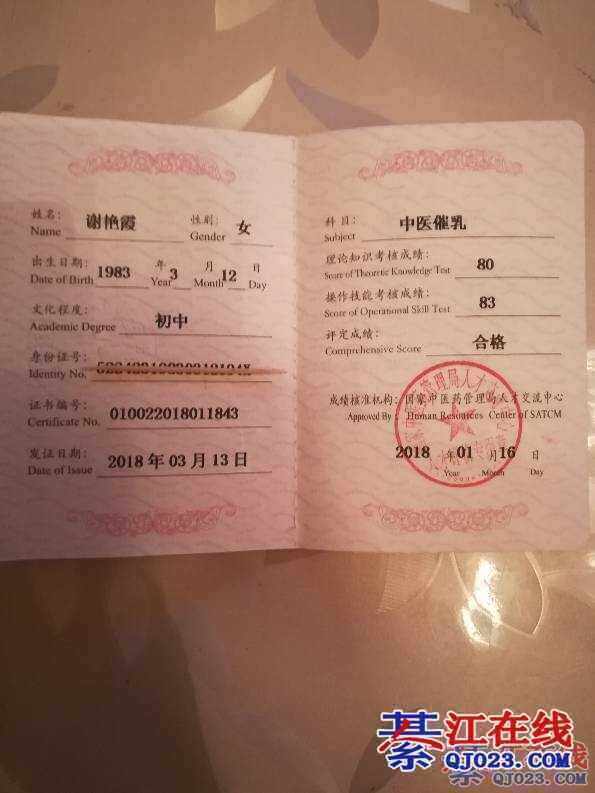 姓名: 谢艳霞 性别: 女
Name Gender
出生日期: 1983 年 3 月 12 日
Date of Birth Year Month Day
文化程度: 初中
Academic Degree
身份证号:
Identity No.
证书编号: 010022018011843
Certificate No.
发证日期: 2018 年 03 月 13 日
Date of Issue
科目: 中医催乳
Subject
理论知识考核成绩: 80
Score of Theoretic Knowledge Test
操作技能考核成绩: 83
Score of Operational Skill Test
评定成绩: 合格
Comprehensive Score
成绩核准机构: 国家中医药管理局人才交流中心
Approved By : Human Resources Center of SATCM
2018 年 01 月 16 日
Year Month Day
綦江在线
QJ023.COM